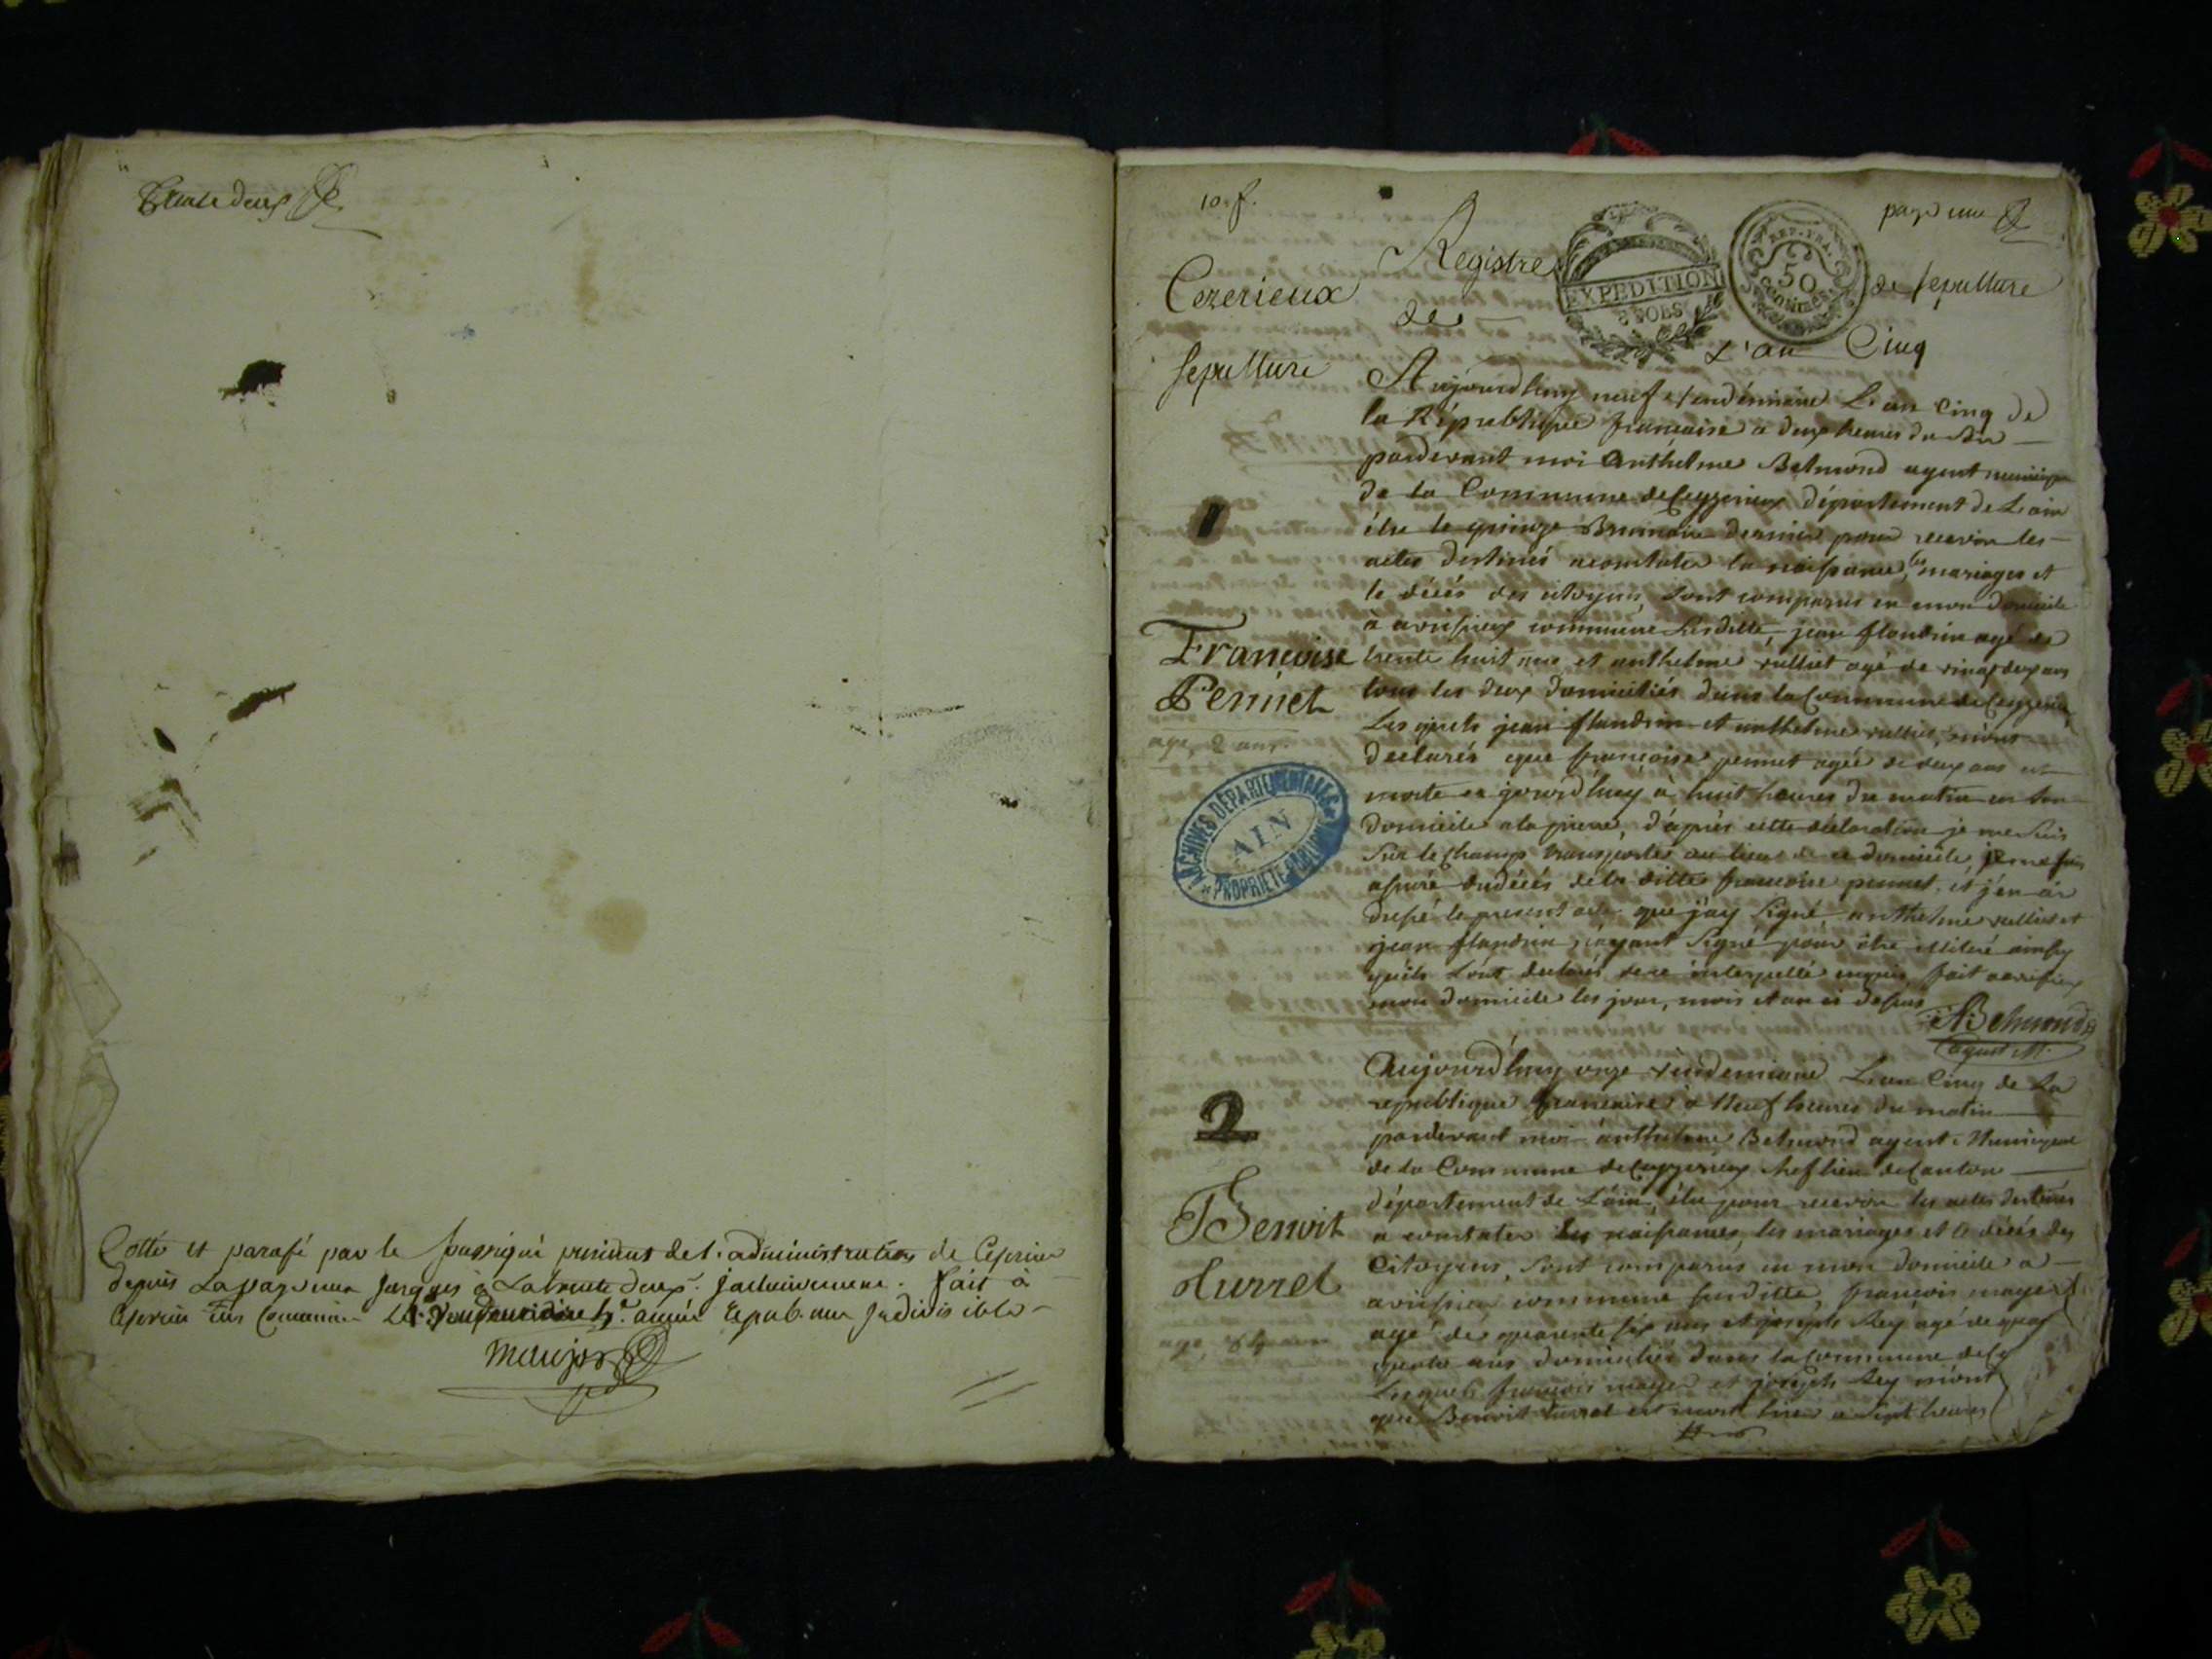 trente deux
Cotté et parafé par le soussigné président de l'administration de Ceserieu
depuis la page une jusques à la trente deux jnclusivement. fait à
Ceserieu en Commune le vendemiaire 5e année Repub. une jndivisible
10. f.
page une
Cezerieux
Registre
EXPEDITION
8 SOLS
REP. FRA.
50
centimes
de sepulture
de
L'an Cinq
sepulture
Aujourdhuy neuf vendémiaire L'an cinq de
la République francaise a deux heures du soir
pardevant moi Anthelme Belmond agent municipal
de la Commune de Ceyzerieux département de L'ain
élu le quinze Brumaire dernier pour recevoir les
actes destinés a constater la naissance, les mariages et
le décés des citoyens, sont comparus en mon domicile
à avrissieux commune susditte, jean flandrin agé de
1
Françoise
Pennet
agé 2 ans
trente huit ans et anthelme rulliet agé de vingt deux ans
tous les deux domiciliés dans la Commune de Ceyzerieu
Lesquels jean flandrin et anthelme rulliet, m'ont
declarés que françoise pennet agée de deux ans est
morte ce jourd'huy à huit heures du matin en son
domicile a la pierre, d'après cette déclaration je me suis
sur le champ transporté au lieu de ce domicile, je me suis
assuré du décés de la ditte francoise pennet, et j'en ai
dressé le present acte que j'ay signé, anthelme rulliet et
jean flandrin n'ayant signé pour être illiteré ainsy
qu'ils l'ont declarés de ce interpellé enquis, fait a avrissieux
mon domicile les jour, mois et an ci dessus
ABelmond
agent M.
ARCHIVES DÉPARTEMENTALES
AIN
PROPRIETE PUBLIQUE
2
Benoit
Hurret
Aujourd'huy onze vendemiaire L'an Cinq de la
republique francaise à Neuf heures du matin
pardevant moi anthelme Belmond agent Municipal
de la Commune de Ceyzerieux cheflieu de Canton
département de L'ain, élu pour recevoir les actes destinés
a constater les naissances, les mariages et le décés des
Citoyens, sont comparus en mon domicile a
avrissieu commune susditte, françois mayer
agé de quarente six ans et joseph Rey agé de
quatre ans domiciliés dans la Commune de
Lesquels françois mayer et joseph Rey m'ont
que Benoit turret est mort hier a sept heures